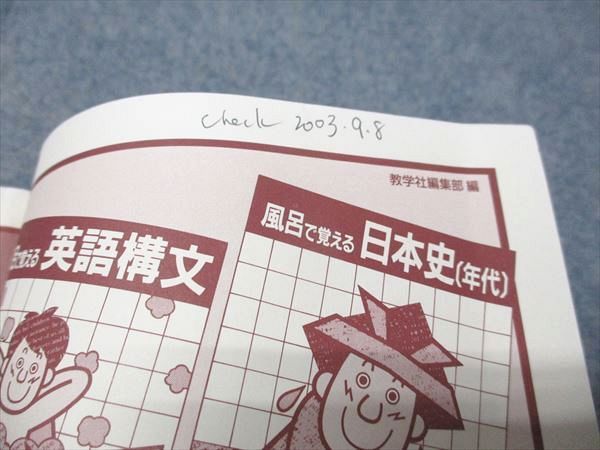 check 2003.9.8
教学社編集部 編
覚える 英語構文
風呂で覚える 日本史(年代)